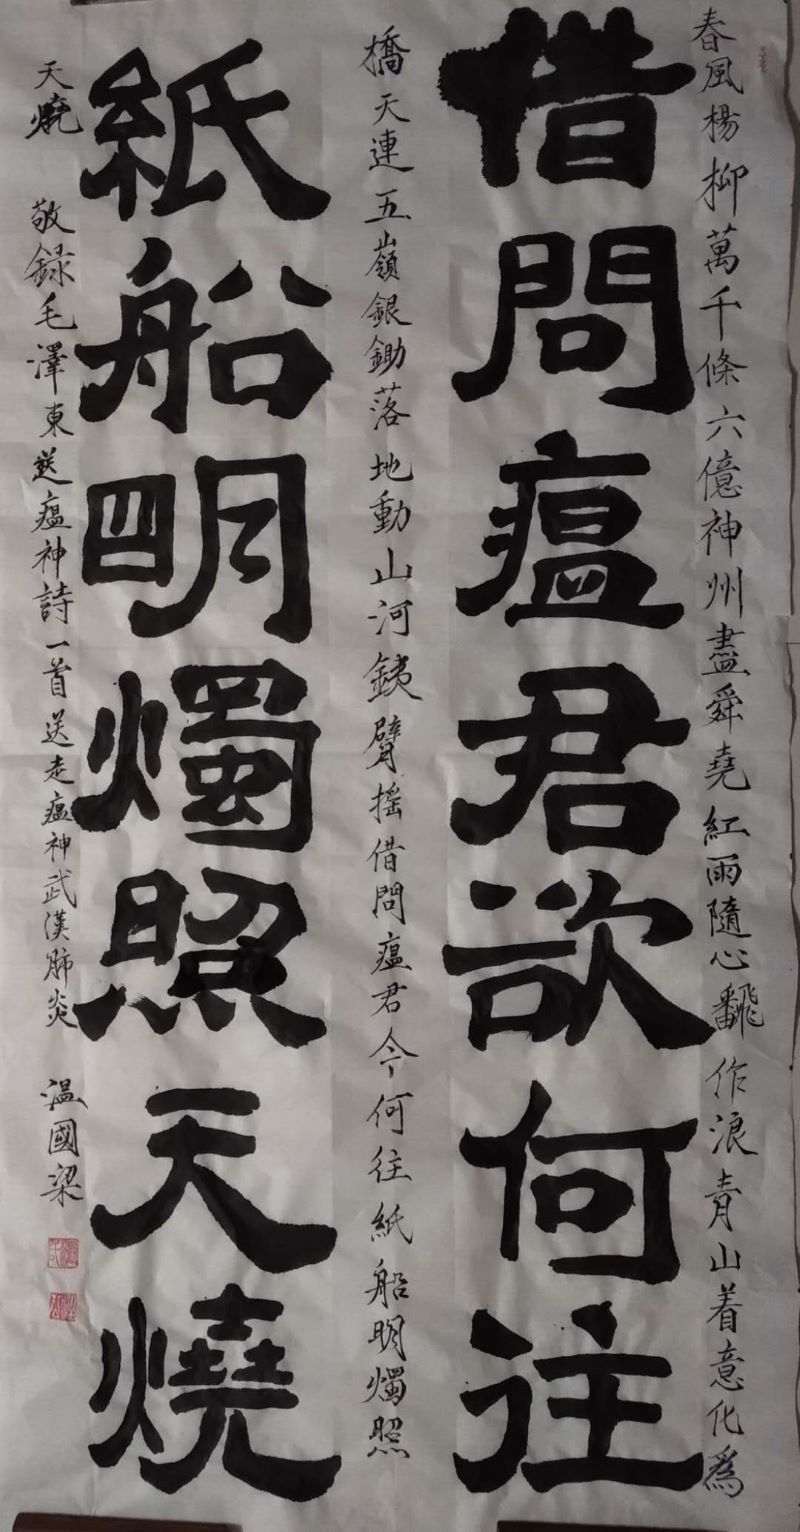 春風楊柳萬千條六億神州盡舜堯紅雨隨心飜作浪青山着意化爲
借問瘟君欲何往
橋天連五嶺銀鋤落地動山河銕臂搖借問瘟君今何往紙船明燭照
紙船明燭照天燒
天燒 敬録毛澤東送瘟神詩一首送走瘟神武漢肺炎 温國梁